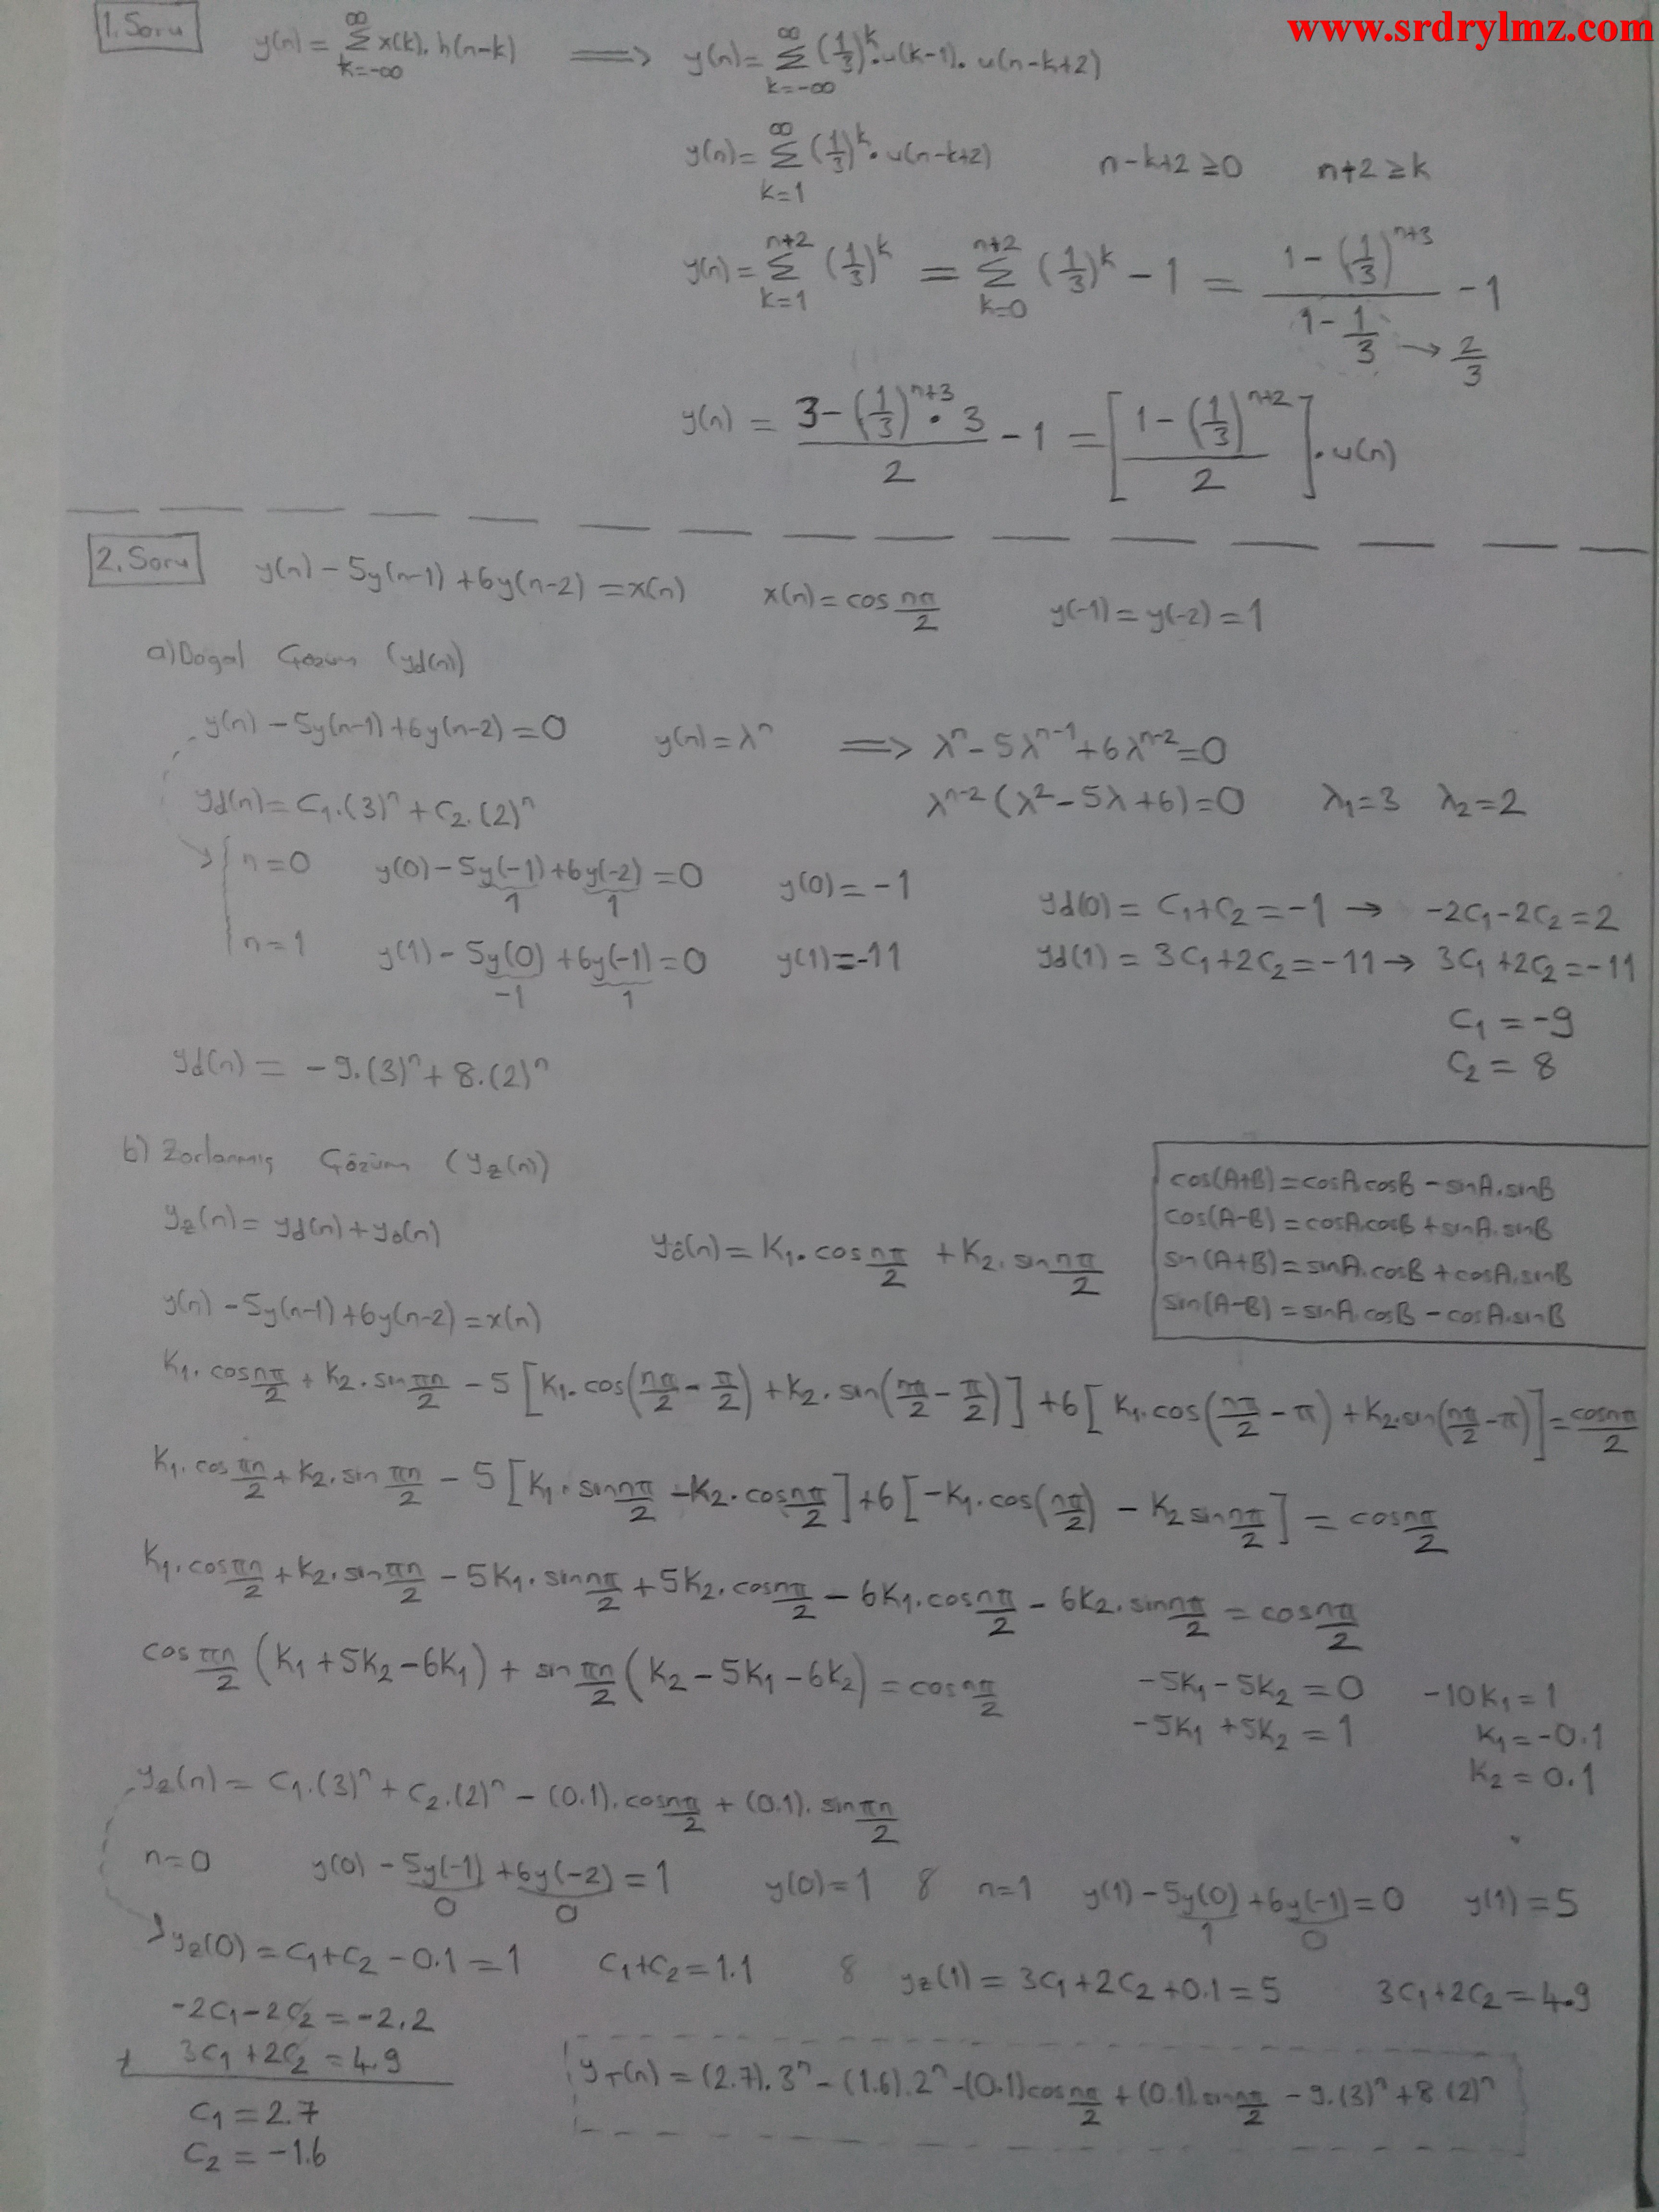 www.srdrylmz.com
1. Soru y(n) = ∑_{k=-∞}^{∞} x(k). h(n-k) ⟹ y(n) = ∑_{k=-∞}^{∞} (1/3)^k . u(k-1). u(n-k+2)
y(n) = ∑_{k=1}^{∞} (1/3)^k . u(n-k+2) n-k+2 ≥ 0 n+2 ≥ k
y(n) = ∑_{k=1}^{n+2} (1/3)^k = ∑_{k=0}^{n+2} (1/3)^k - 1 = (1-(1/3)^{n+3})/(1-1/3) - 1 → 2/3
y(n) = (3-(1/3)^{n+3} . 3)/2 - 1 = [(1-(1/3)^{n+2})/2] . u(n)
2. Soru y(n) - 5y(n-1) + 6y(n-2) = x(n) x(n) = cos nπ/2 y(-1) = y(-2) = 1
a) Doğal Çözüm (yd(n))
y(n) - 5y(n-1) + 6y(n-2) = 0 y(n) = λ^n ⟹ λ^n - 5λ^{n-1} + 6λ^{n-2} = 0
λ^{n-2} (λ² - 5λ + 6) = 0 λ₁ = 3 λ₂ = 2
yd(n) = C₁.(3)^n + C₂.(2)^n
n=0 y(0) - 5y(-1) + 6y(-2) = 0 y(0) = -1 yd(0) = C₁+C₂ = -1 → -2C₁-2C₂ = 2
1 1
n=1 y(1) - 5y(0) + 6y(-1) = 0 y(1) = -11 yd(1) = 3C₁+2C₂ = -11 → 3C₁+2C₂ = -11
-1 1
C₁ = -9
C₂ = 8
yd(n) = -9.(3)^n + 8.(2)^n
b) Zorlanmış Çözüm (yz(n))
yz(n) = yd(n) + yö(n) yö(n) = K₁. cos nπ/2 + K₂. sin nπ/2
cos(A+B) = cosA.cosB - sinA.sinB
cos(A-B) = cosA.cosB + sinA.sinB
sin(A+B) = sinA.cosB + cosA.sinB
sin(A-B) = sinA.cosB - cosA.sinB
y(n) - 5y(n-1) + 6y(n-2) = x(n)
K₁. cos nπ/2 + K₂. sin πn/2 - 5 [K₁. cos(nπ/2 - π/2) + K₂. sin(nπ/2 - π/2)] + 6 [K₁. cos(nπ/2 - π) + K₂. sin(nπ/2 - π)] = cos nπ/2
K₁. cos πn/2 + K₂. sin πn/2 - 5 [K₁. sin nπ/2 - K₂. cos nπ/2] + 6 [-K₁. cos(nπ/2) - K₂ sin nπ/2] = cos nπ/2
K₁. cos πn/2 + K₂. sin πn/2 - 5K₁. sin nπ/2 + 5K₂. cos nπ/2 - 6K₁. cos nπ/2 - 6K₂. sin nπ/2 = cos nπ/2
cos πn/2 (K₁ + 5K₂ - 6K₁) + sin πn/2 (K₂ - 5K₁ - 6K₂) = cos nπ/2 -5K₁ - 5K₂ = 0 -10K₁ = 1
-5K₁ + 5K₂ = 1 K₁ = -0.1
K₂ = 0.1
yz(n) = C₁.(3)^n + C₂.(2)^n - (0.1). cos nπ/2 + (0.1). sin πn/2
n=0 y(0) - 5y(-1) + 6y(-2) = 1 y(0) = 1 8 n=1 y(1) - 5y(0) + 6y(-1) = 0 y(1) = 5
0 0 1 0
yz(0) = C₁+C₂ - 0.1 = 1 C₁+C₂ = 1.1 8 yz(1) = 3C₁+2C₂+0.1 = 5 3C₁+2C₂ = 4.9
-2C₁-2C₂ = -2.2
+ 3C₁+2C₂ = 4.9
C₁ = 2.7
C₂ = -1.6
yT(n) = (2.7).3^n - (1.6).2^n - (0.1) cos nπ/2 + (0.1). sin nπ/2 - 9.(3)^n + 8 (2)^n